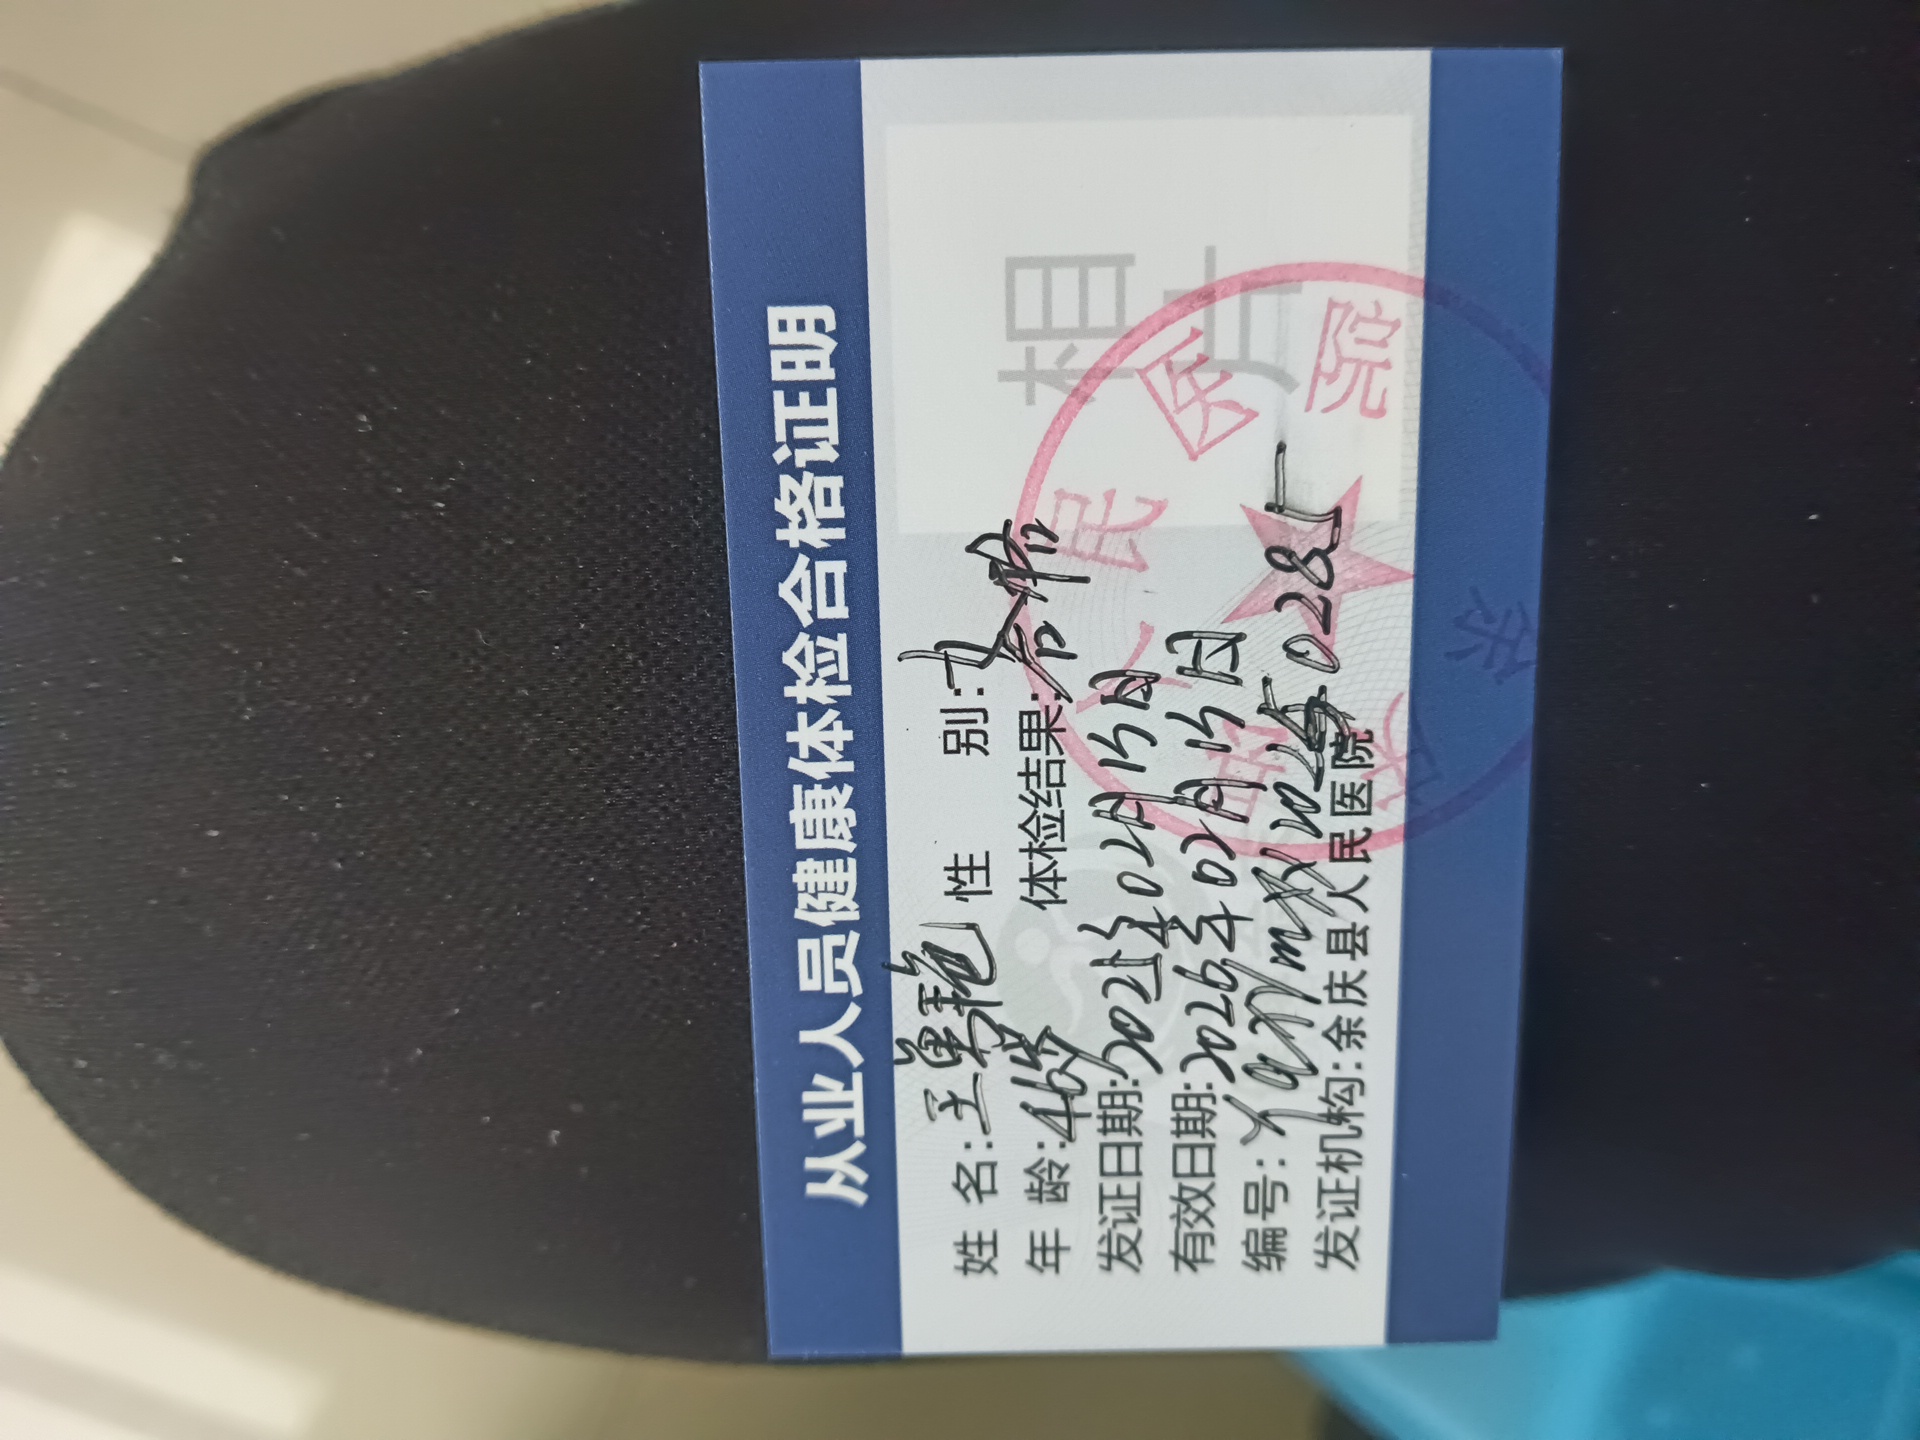 从业人员健康体检合格证明
姓 名: 王 艳 性 别: 女
年 龄: 46岁 体检结果: 合格
发证日期: 2025年02月13日
有效日期: 2026年02月13日
编号:
发证机构: 余庆县人民医院
相
片
余庆县人民医院